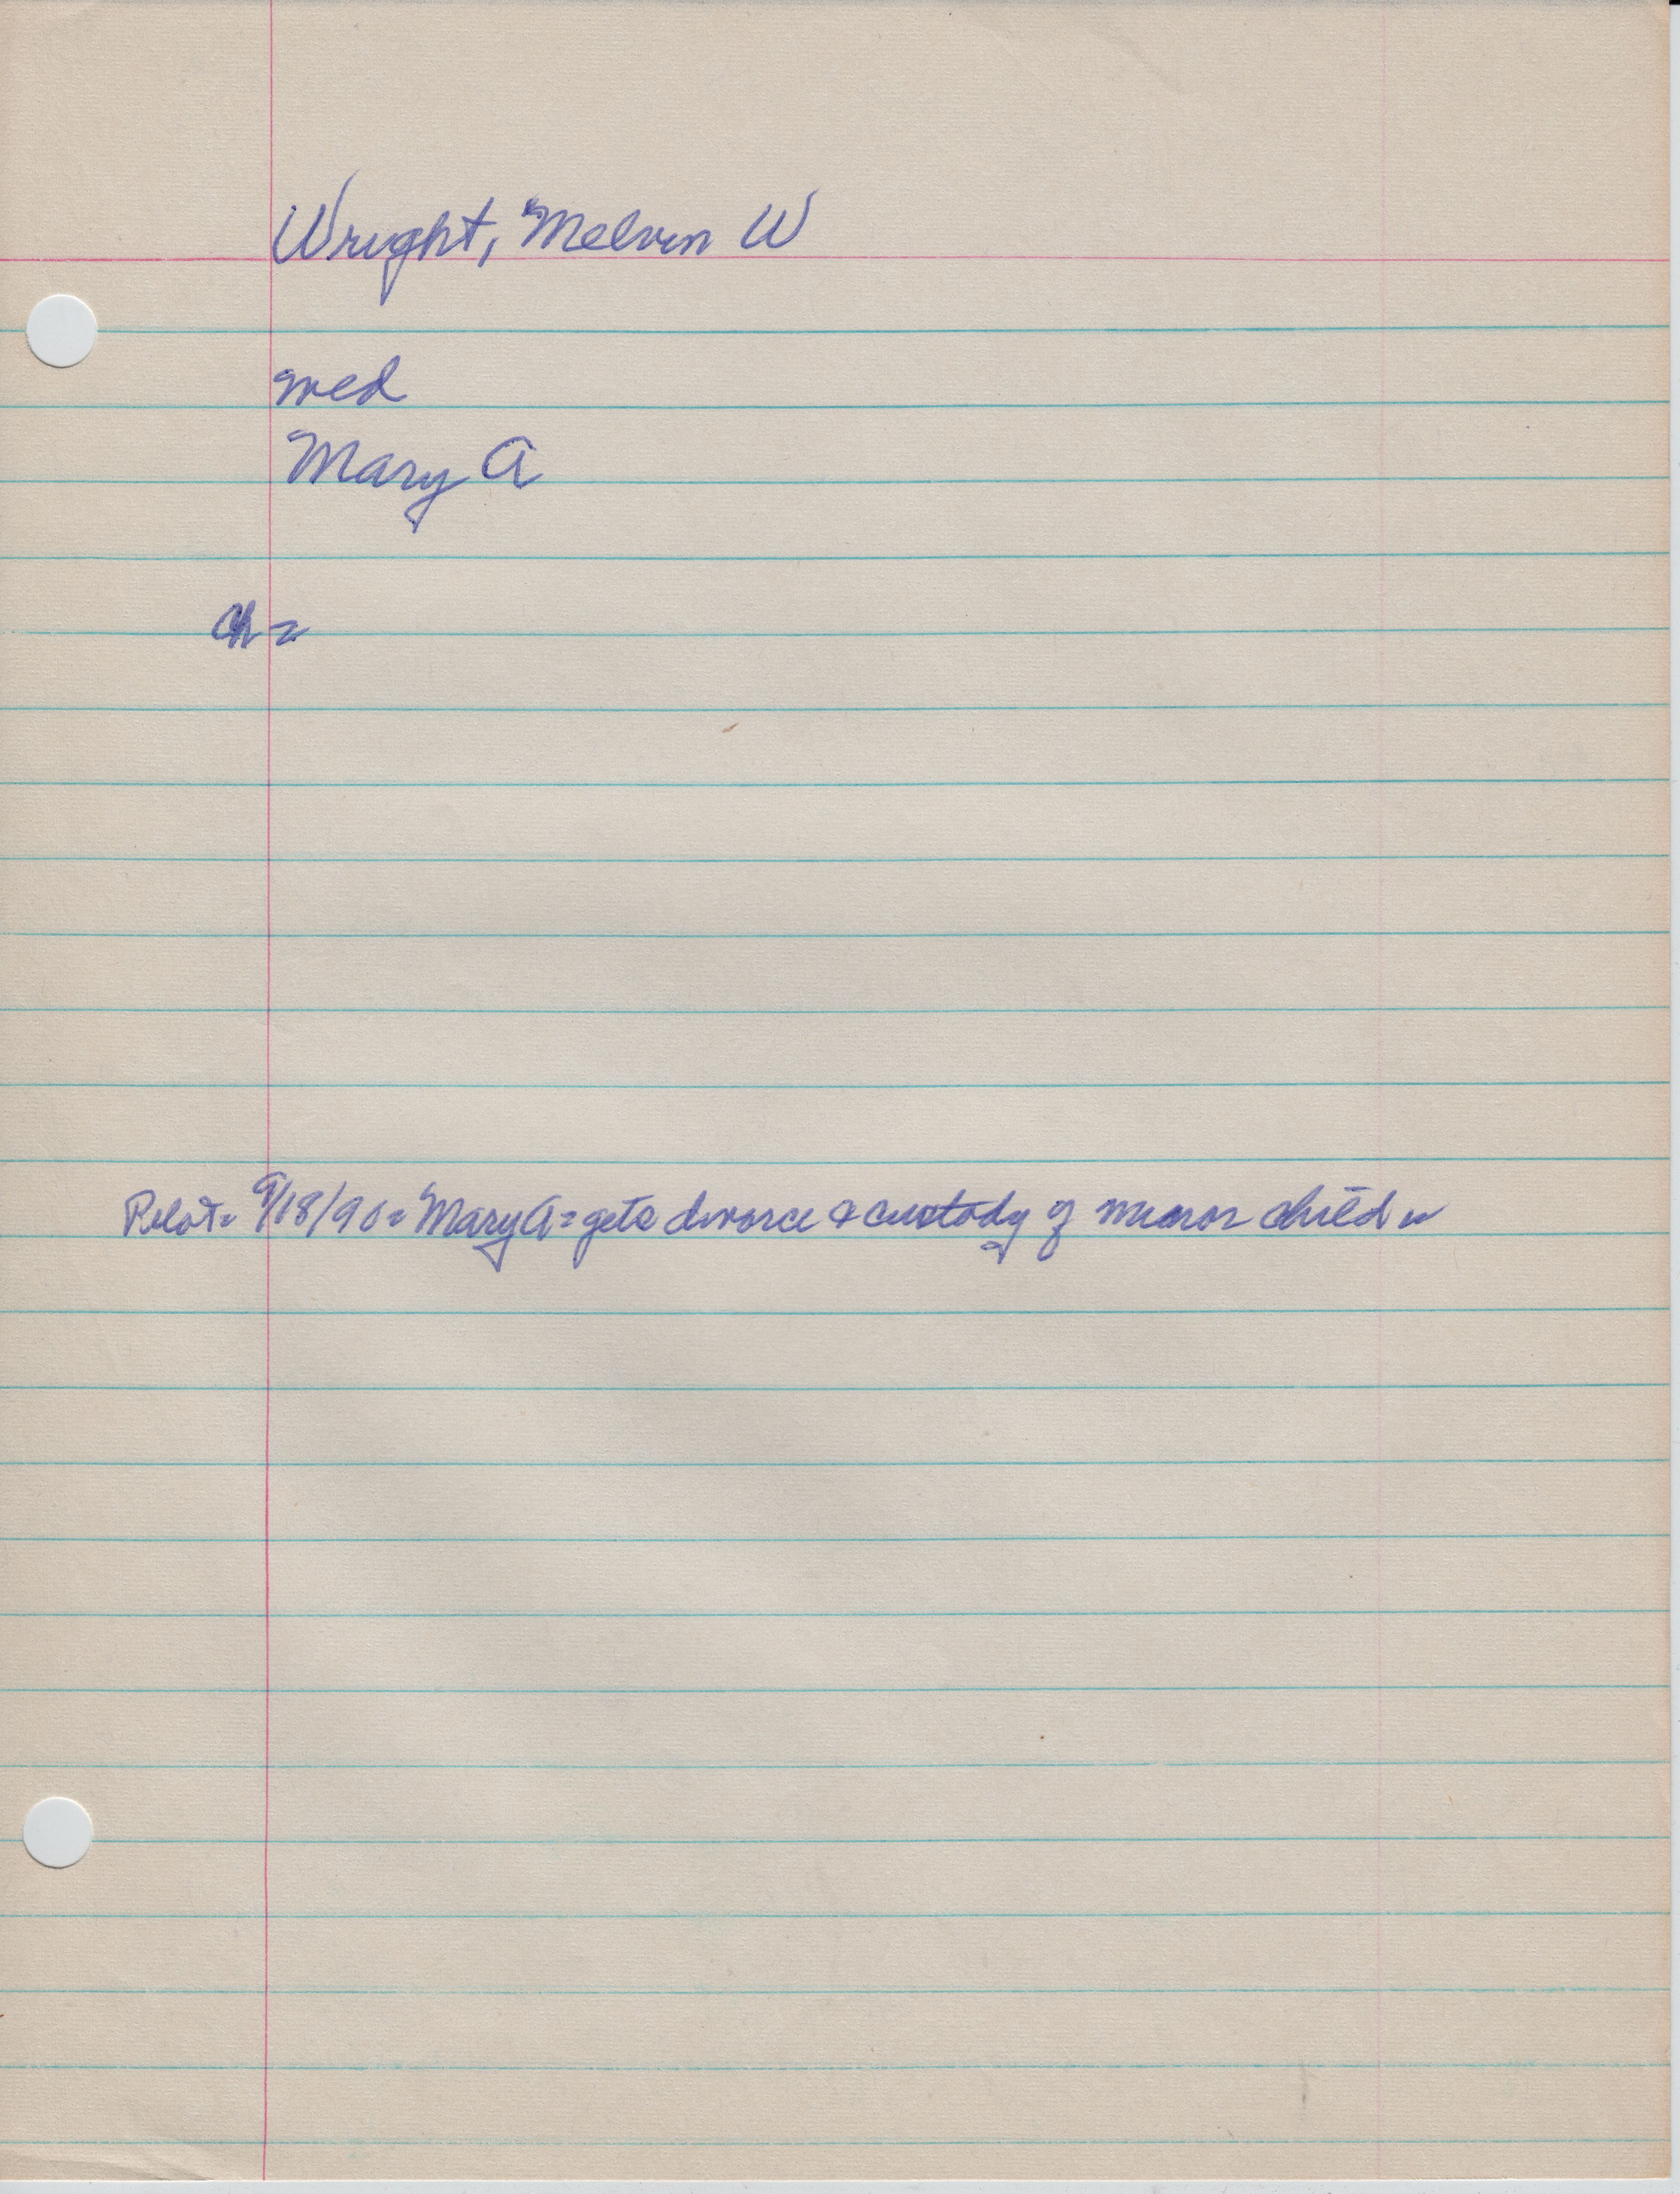 Wright, Melvin W
wed
Mary A
Ch =
Pilot = 9/18/90 = Mary A = gets divorce & custody of minor child =